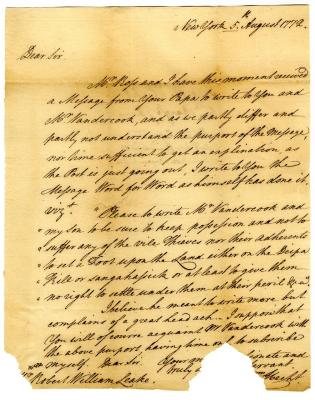 New York 5.th August 1772.
Dear Sir
Mr. Ross and I have this moment received
a Message from Your Papa to write to You and
Mr. Vandercook, and as we partly differ and
partly not understand the purport of the Message,
nor time sufficient to get an explanation, as
the Post is just going out, I write to You the
Message Word for Word as himself has done it,
vizt.
" Please to write Mr. Vandercook and
" my Son to be sure to keep possession and not to
" suffer any of the vile Thieves nor their adherents
" to set a Foot upon the Land either on the
" Kill or sangahasick or at least to give them
" no right to settle under them at their peril &ca.
I believe he meant to write more but
complains of a great head ach. I suppose that
You will of course acquaint Mr Vandercook with
the above purport having time but to subscribe
myself Dear Sir Your
Truly
Robert William Leake.